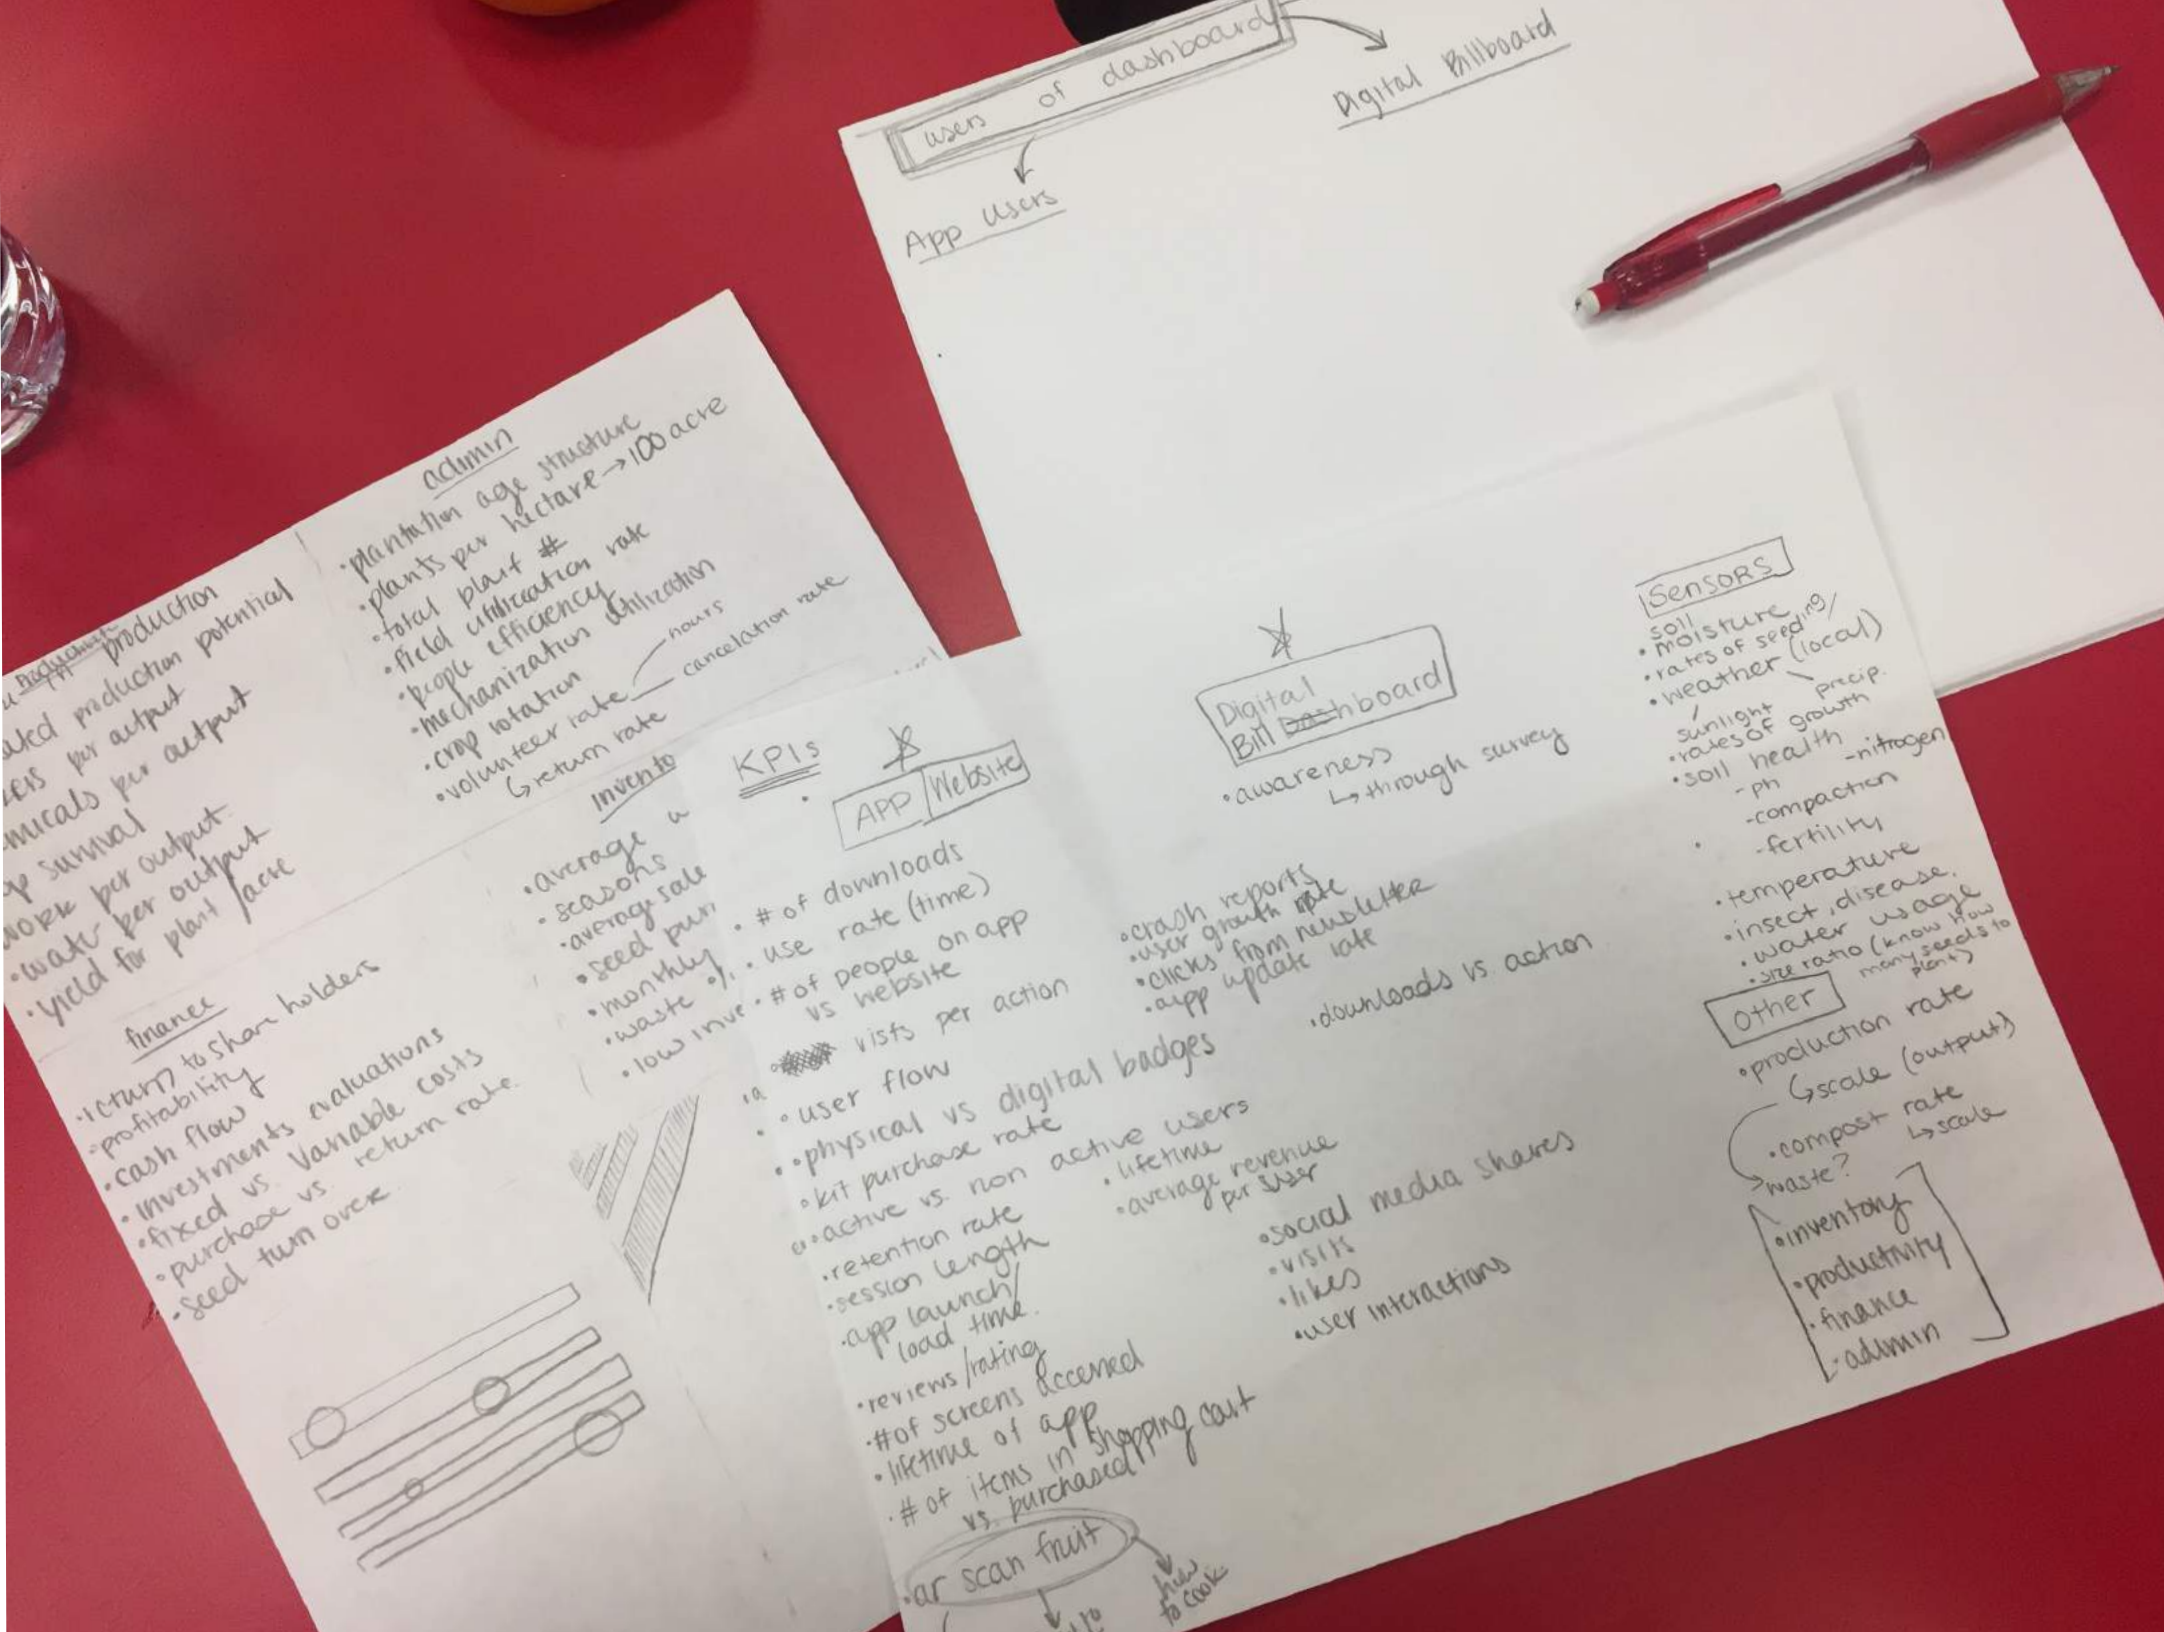 users of dashboard
Digital Billboard
App users
production
production potential
per output
per output
survival
work per output
water per output
yield for plant /acre
admin
• plantation age structure
• plants per hectare → 100 acre
• total plant #
• field utilization rate
• people efficiency
• mechanization utilization
• crop rotation
• volunteer rate
hours
cancelation rate
return rate
finance
• return to share holders
• profitability
• cash flow
• investments evaluations
• fixed vs. variable costs
• purchase vs. return rate
• seed turn over
invento
• average
• seasons
• average sale
• seed
• monthly
• waste %
• low inve
KPIs
APP Website
• # of downloads
• use rate (time)
• # of people on app
vs website
vists per action
• user flow
• physical vs digital badges
• kit purchase rate
• active vs. non active users
• retention rate
• session length
• app launch/
load time.
• reviews/rating
• # of screens accessed
• lifetime of app
• # of items in shopping cart
vs. purchased
• ar scan fruit
how
to cook
• crash reports
• user growth rate
• clicks from newsletter
• app update rate
• downloads vs. action
• lifetime
• average revenue
per user
• social media shares
• visits
• likes
• user interactions
Digital
Bill board
• awareness
↳ through survey
Sensors
soil
• moisture
• rates of seeding/
• weather (local)
precip.
sunlight
• rates of growth
• soil health
- nitrogen
- ph
- compaction
- fertility
• temperature
• insect, disease
• water usage
• size ratio (know how
many seeds to
plant)
Other
• production rate
↳ scale (output)
• compost rate
↳ scale
waste?
• inventory
• productivity
• finance
• admin